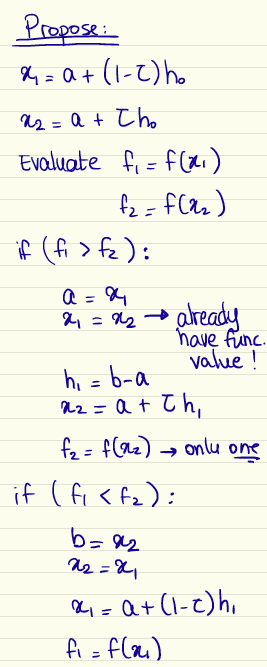 Propose:
x₁ = a + (1-τ)h₀
x₂ = a + τh₀
Evaluate f₁ = f(x₁)
f₂ = f(x₂)
if (f₁ > f₂):
a = x₁
x₁ = x₂ → already
have func.
value!
h₁ = b-a
x₂ = a + τh₁
f₂ = f(x₂) → only one
if (f₁ < f₂):
b = x₂
x₂ = x₁
x₁ = a + (1-τ)h₁
f₁ = f(x₁)